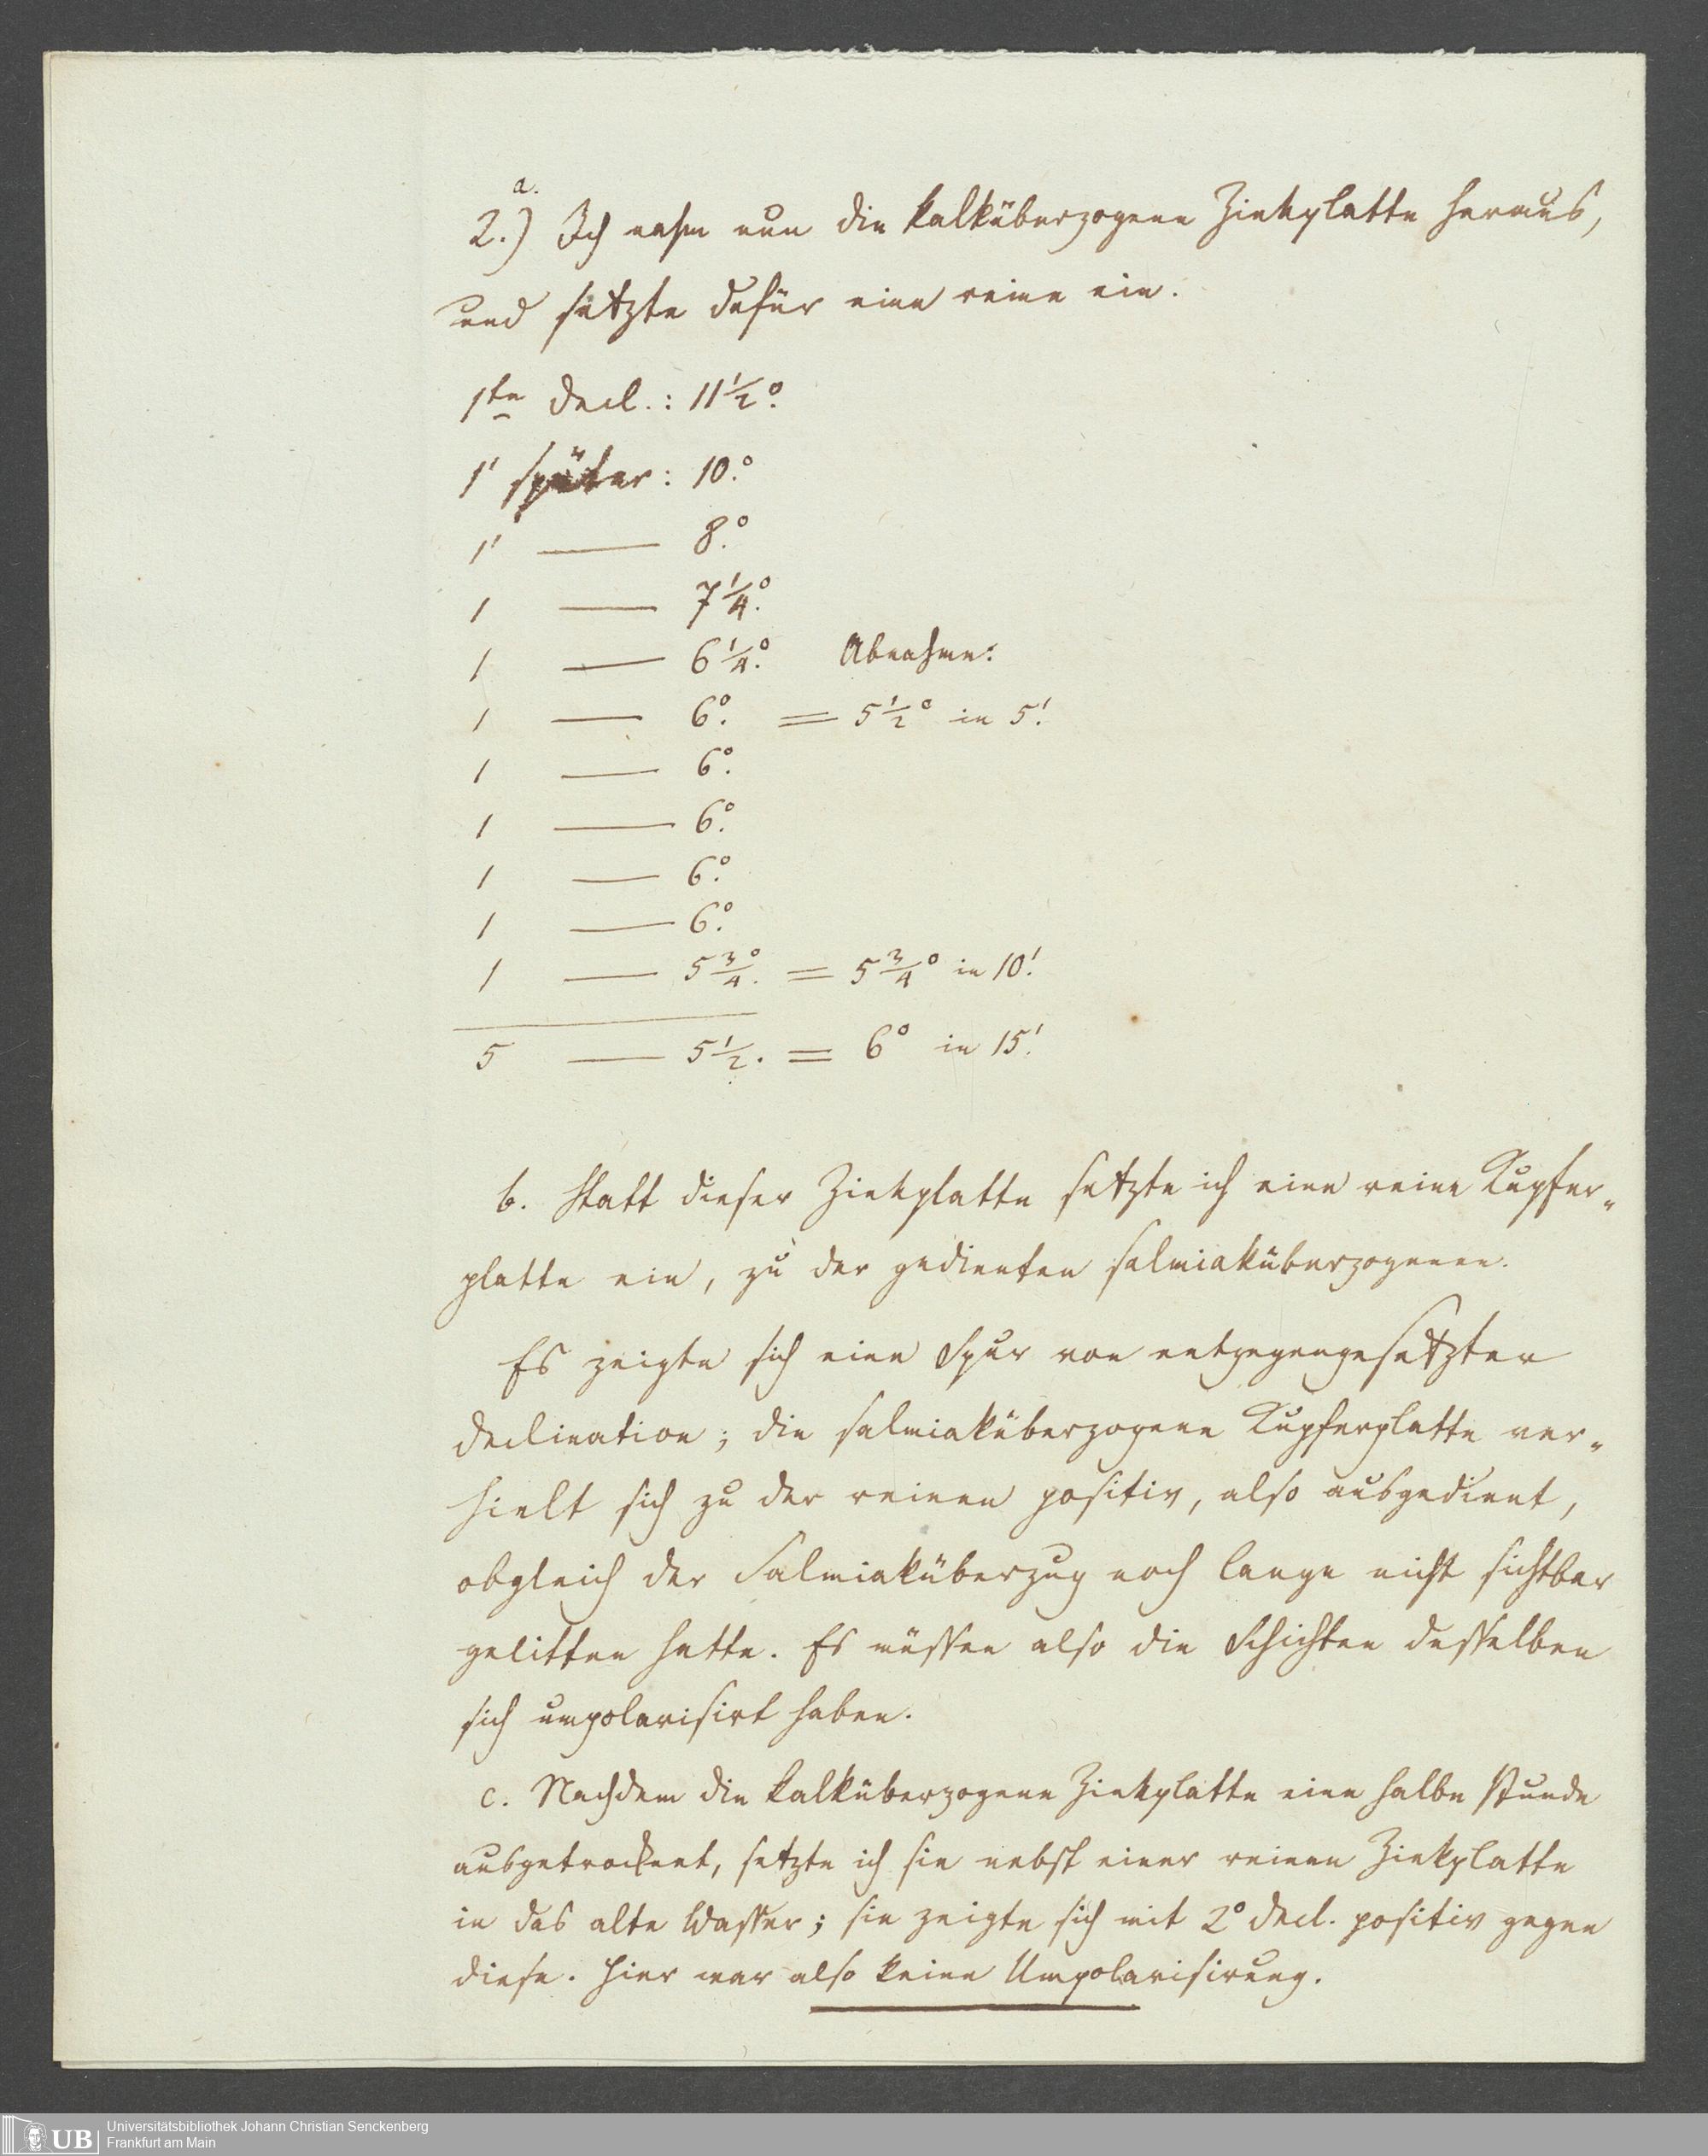 a.
2.) Ich nahm nun die kalküberzogene Zinkplatte heraus,
und setzte dafür eine reine ein.
1ste Decl.: 11 1/2°.
1' später: 10°.
1' — 8°.
1 — 7 1/4°.
1 — 6 1/4°. Abnahme:
1 — 6°. = 5 1/2° in 5'.
1 — 6°.
1 — 6°.
1 — 6°.
1 — 6°.
1 — 5 3/4°. = 5 3/4° in 10'.
5 — 5 1/2. = 6° in 15'.
b. Statt dieser Zinkplatte setzte ich eine reine Kupfer-
platte ein, zu der gedienten salmiaküberzogenen.
Es zeigte sich eine Spur von entgegengesetzter
Declination; die salmiaküberzogene Kupferplatte ver-
hielt sich zu der reinen positiv, also ausgedient,
obgleich der Salmiaküberzug noch lange nicht sichtbar
gelitten hatte. Es müssen also die Schichten desselben
sich umpolarisirt haben.
c. Nachdem die kalküberzogene Zinkplatte eine halbe Stunde
ausgetrocknet, setzte ich sie nebst einer reinen Zinkplatte
in das alte Wasser; sie zeigte sich mit 2° Decl. positiv gegen
diese. Hier war also keine Umpolarisirung.
UB
Universitätsbibliothek Johann Christian Senckenberg
Frankfurt am Main